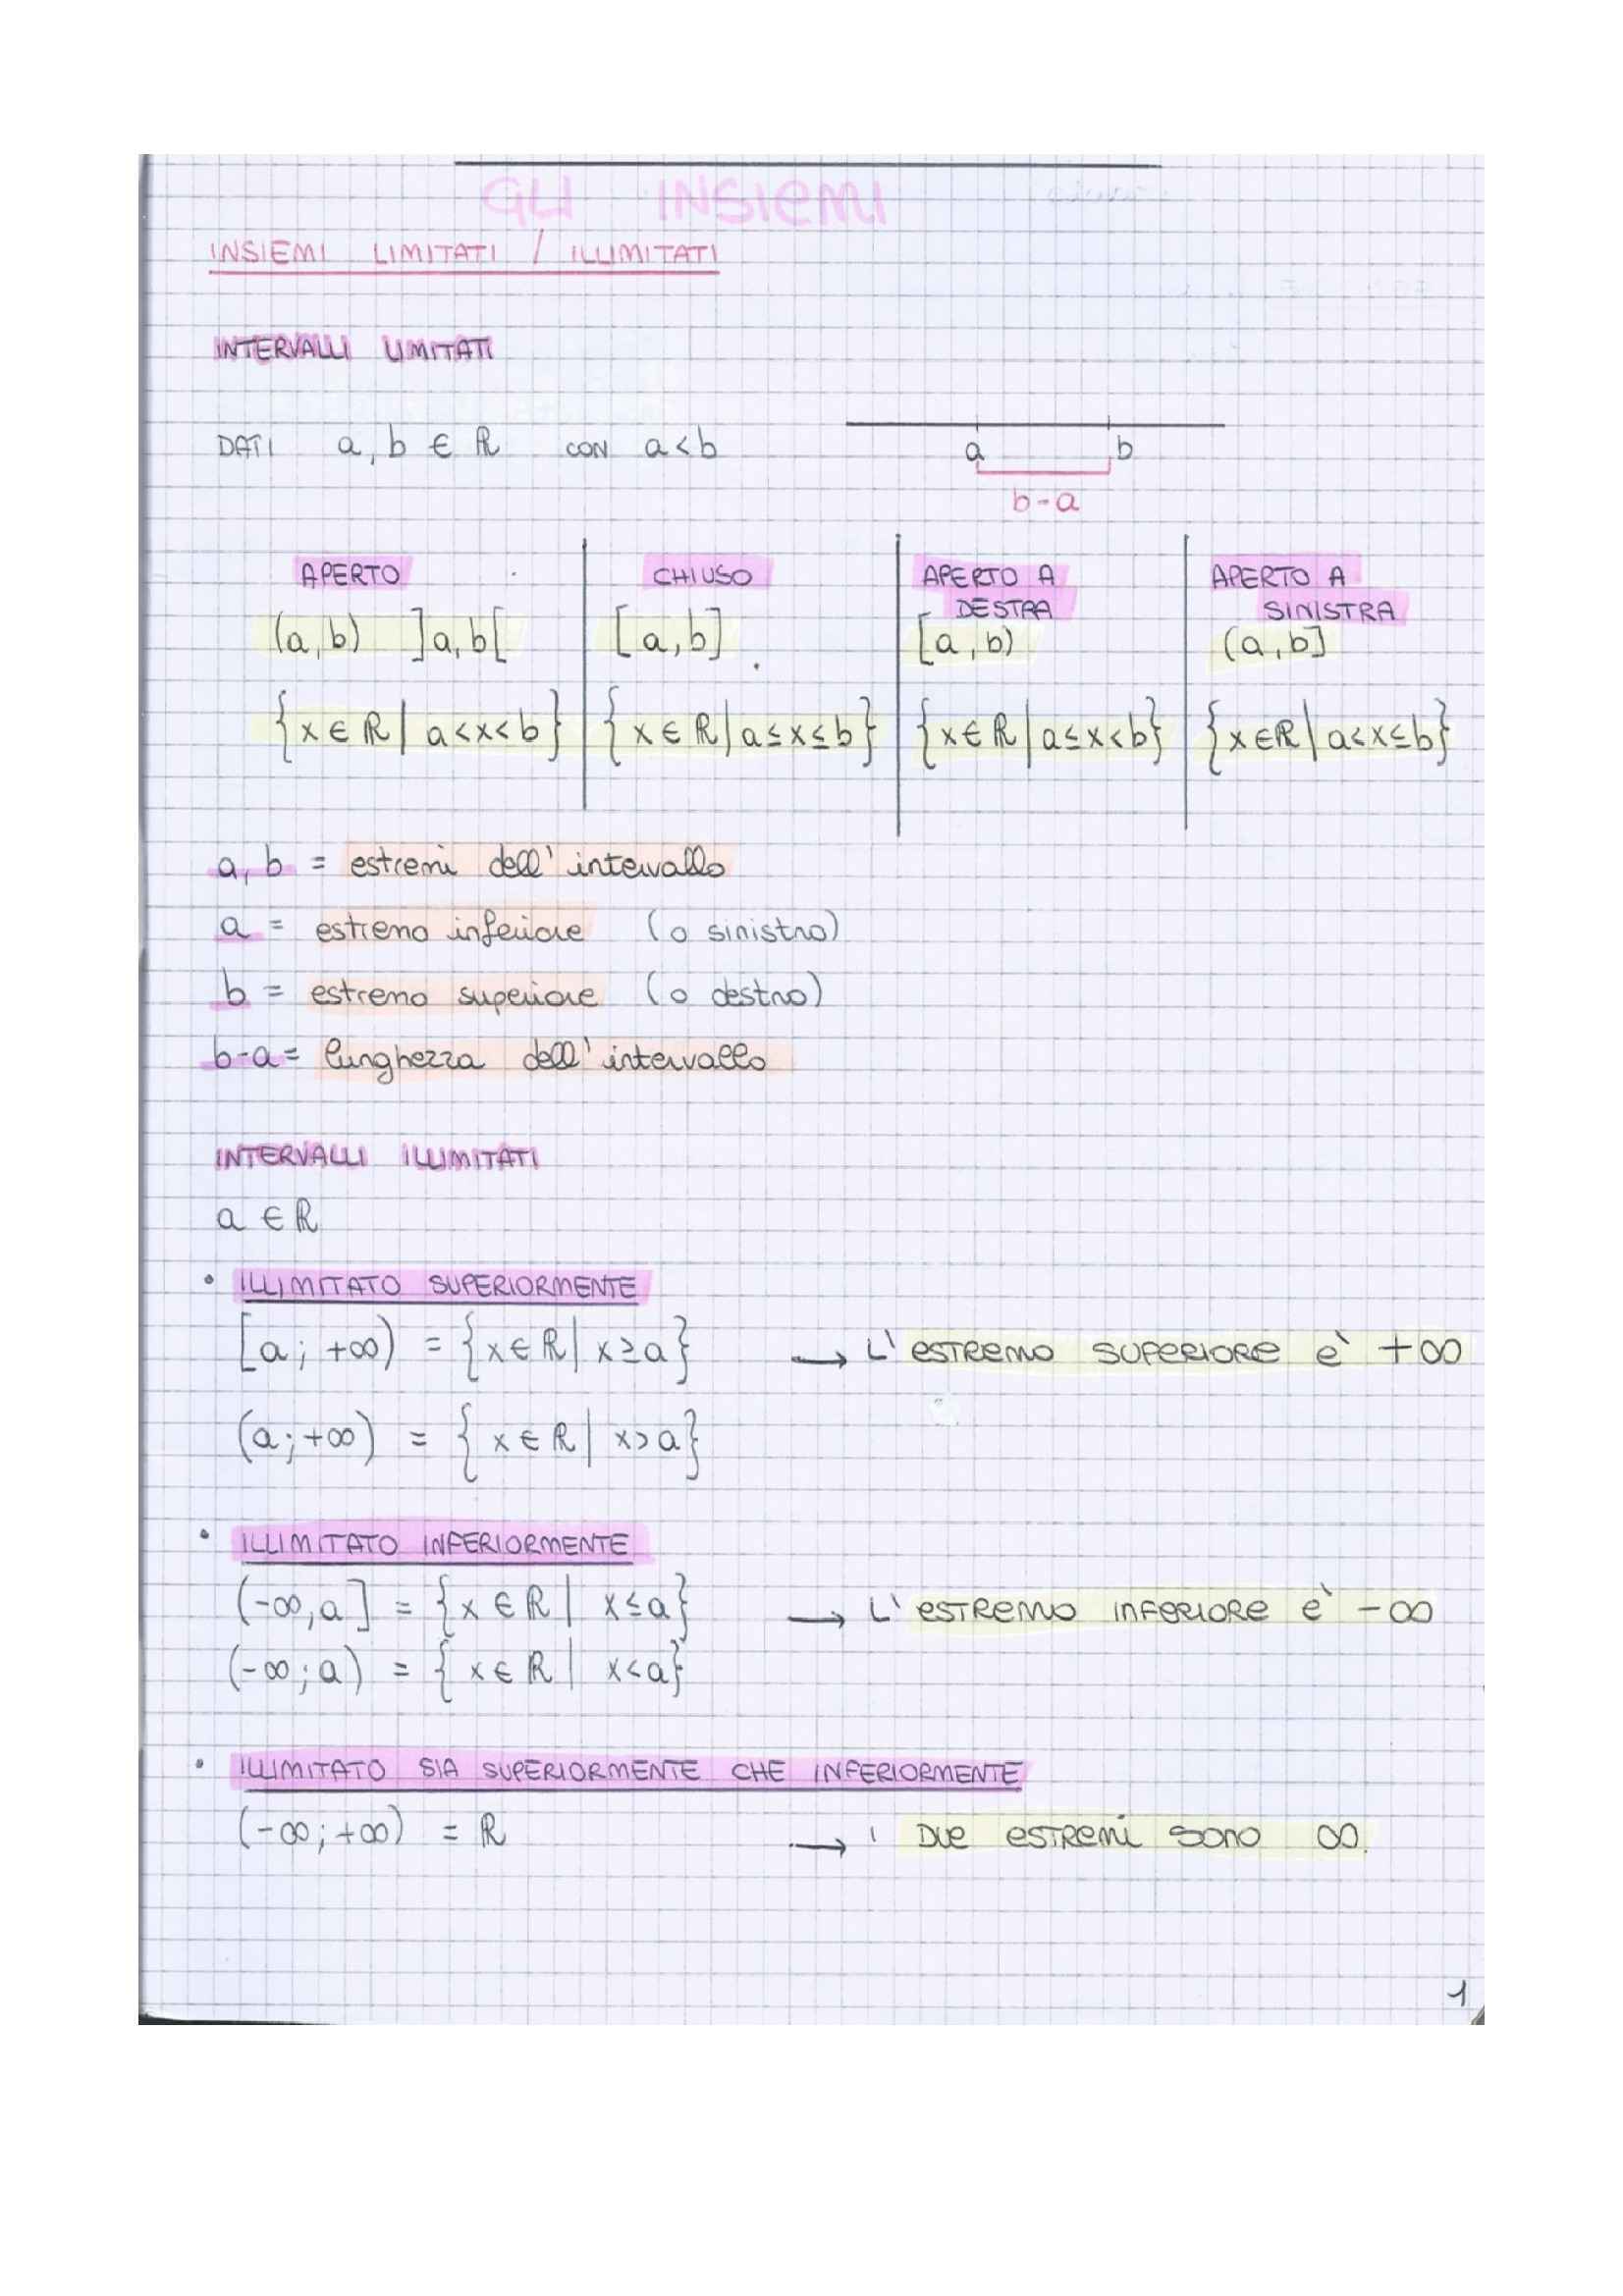 GLI INSIEMI
INSIEMI LIMITATI / ILLIMITATI
INTERVALLI LIMITATI
DATI a, b ∈ ℝ CON a < b
a b
b-a
APERTO
(a, b) ]a, b[
{x ∈ ℝ | a < x < b}
CHIUSO
[a, b]
{x ∈ ℝ | a ≤ x ≤ b}
APERTO A
DESTRA
[a, b)
{x ∈ ℝ | a ≤ x < b}
APERTO A
SINISTRA
(a, b]
{x ∈ ℝ | a < x ≤ b}
a, b = estremi dell' intervallo
a = estremo inferiore (o sinistro)
b = estremo superiore (o destro)
b-a = lunghezza dell' intervallo
INTERVALLI ILLIMITATI
a ∈ ℝ
• ILLIMITATO SUPERIORMENTE
[a; +∞) = {x ∈ ℝ | x ≥ a} → L' ESTREMO SUPERIORE è +∞
(a; +∞) = {x ∈ ℝ | x > a}
• ILLIMITATO INFERIORMENTE
(-∞, a] = {x ∈ ℝ | x ≤ a} → L' ESTREMO INFERIORE è -∞
(-∞; a) = {x ∈ ℝ | x < a}
• ILLIMITATO SIA SUPERIORMENTE CHE INFERIORMENTE
(-∞; +∞) = ℝ → I DUE ESTREMI SONO ∞.
1